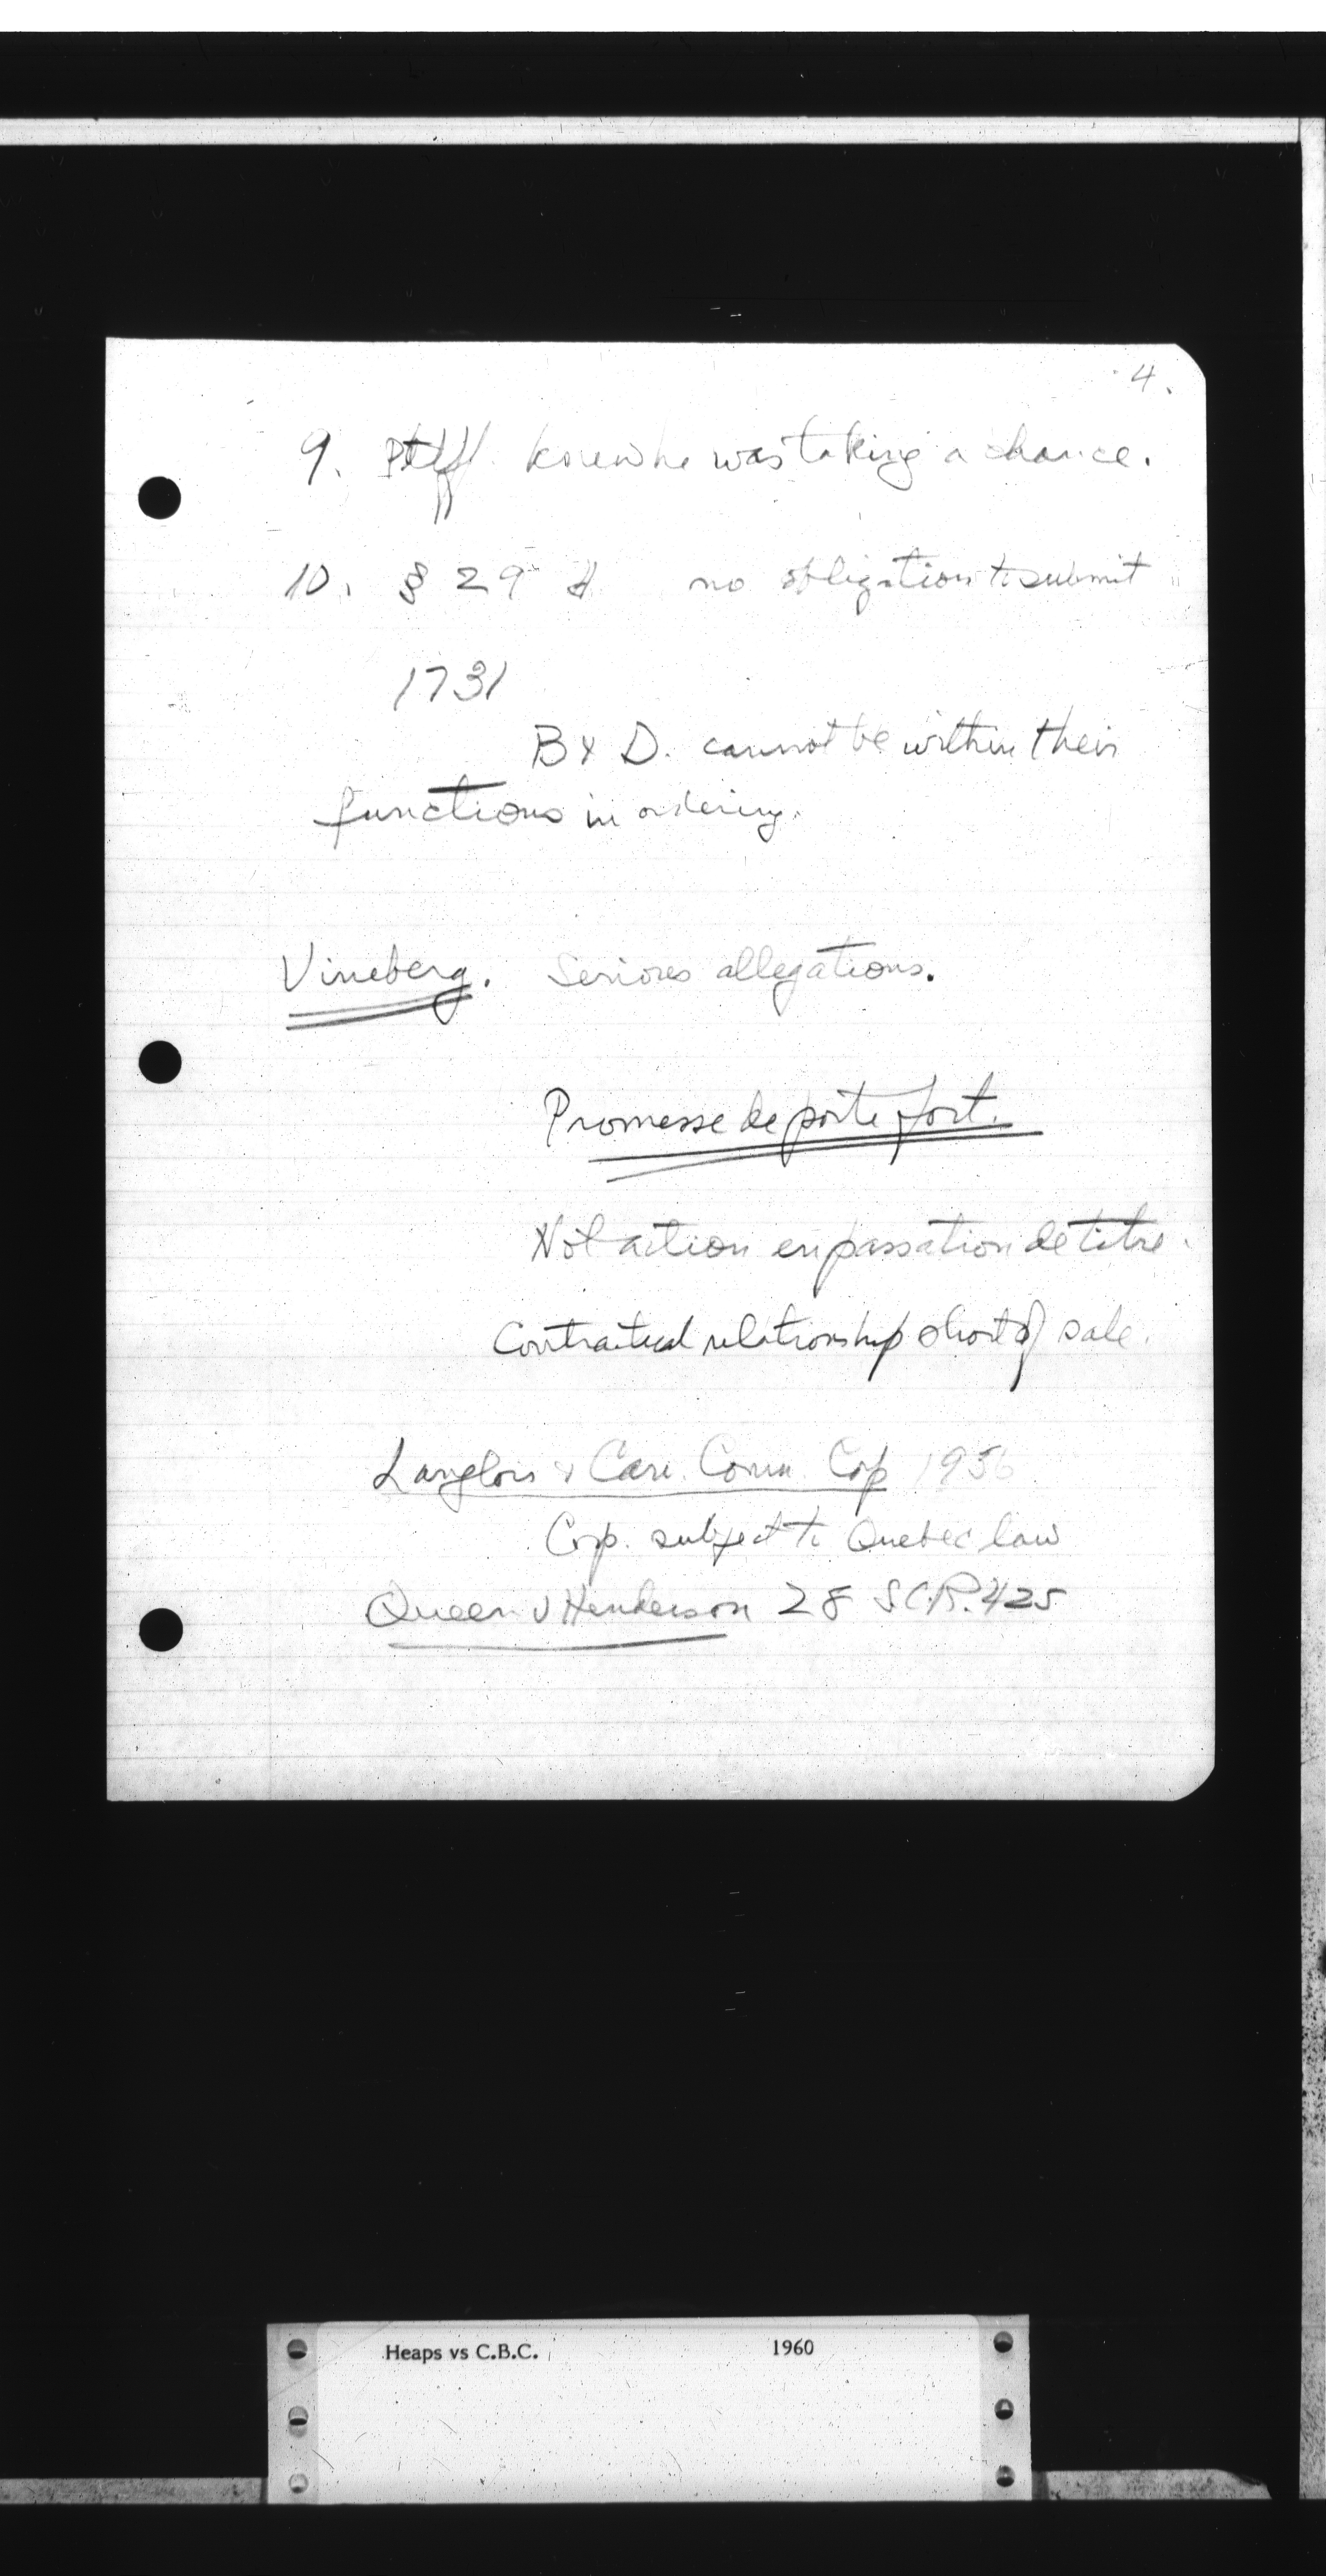 4.
9. Ptff. knew he was taking a chance.
10. § 29 no obligation to submit
1731
B & D. cannot be within their
functions in ordering.
Vineberg. Serious allegations.
Promesse de porte fort.
Not action en passation de titre.
Contractual relationship short of sale.
Langlois v Can. Comm. Corp 1956
Corp. subject to Quebec law
Queen v Henderson 28 S.C.R. 425
Heaps vs C.B.C. 1960